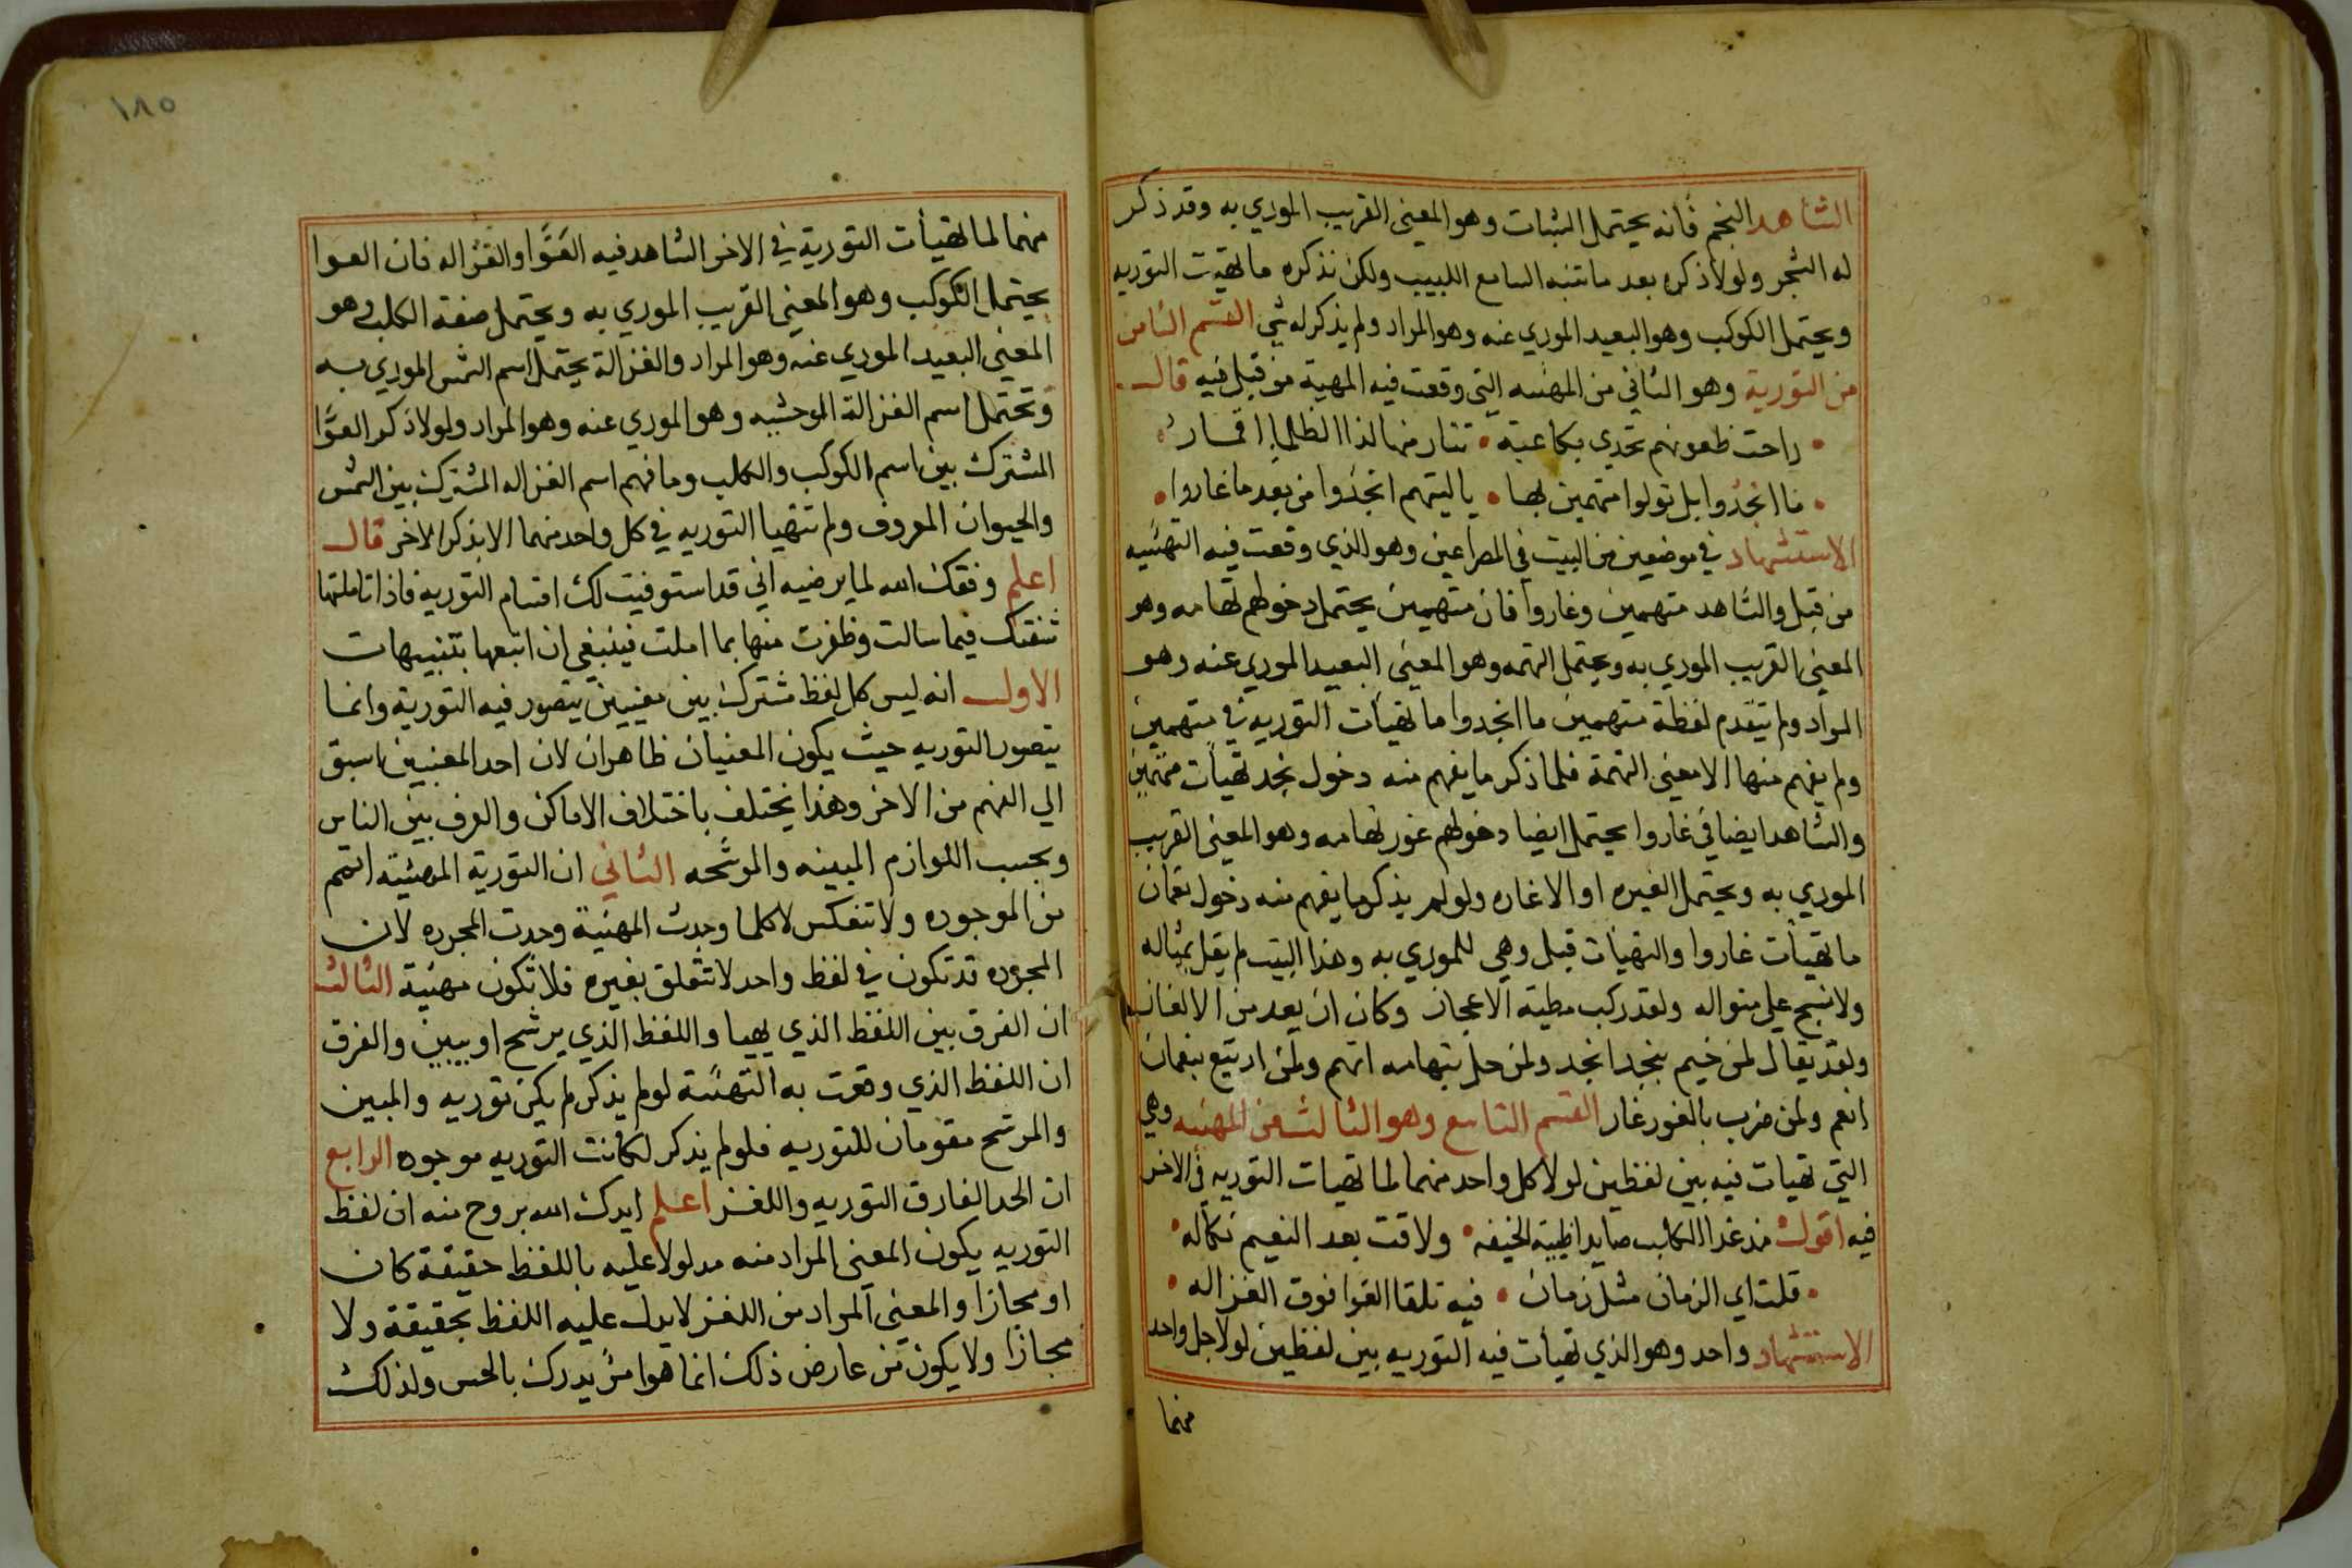 الشاهد النجم فانه يحتمل النبات وهو المعنى القريب الموري به وقد ذكر
له الشجر ولولا ذكره بعد ما تنبه السامع اللبيب ولكن نذكره ما تهيت التوريه
ويحتمل الكوكب وهو البعيد الموري عنه وهو المراد ولم يذكر له شي القسم الثامن
من التورية وهو الثاني من المهيئه التي وقعت فيه المهيه من قبل فيه قال
راحت ظعونهم تحدي بكاعبة • تنار منها لذا الظلما اقمار
ما انجدوا بل تولوا متهمين بها • ياليتهم انجدوا من بعد ما غاروا
الاستشهاد في موضعين من البيت في المصراعين وهو الذي وقعت فيه التهئيه
من قبل والشاهد متهمين وغاروا فان متهمين يحتمل دخولهم تهامه وهو
المعنى القريب الموري به ويحتمل التهمه وهو المعنى البعيد الموري عنه وهو
المراد ولم تتقدم لفظة متهمين ما انجدوا ما تهيأت التوريه في متهمين
ولم يفهم منها الا معنى التهمة فلما ذكر ما يفهم منه دخول نجد تهيأت متهمين
والشاهد ايضا في غاروا يحتمل ايضا دخولهم غور تهامه وهو المعنى القريب
الموري به ويحتمل الغيره او الاغاره ولو لم يذكر ما يفهم منه دخول نعمان
ما تهيأت غاروا والتهيأت قبل وهي للموري به وهذا البيت لم يقل بمثاله
ولا نسج على منواله ولقد ركب مطية الاعجاز وكان ان يعد من الالغاز
ولقد يقال لمن خيم بنجد انجد ولمن حل بتهامه اتهم ولمن ارتبع بنعمان
انعم ولمن ضرب بالغور غار القسم التاسع وهو الثالث من المهئيه وهي
التي تهيات فيه بين لفظين لولا كل واحد منهما لما تهيات التوريه في الاخر
فيه اقول مذ غدا الكلب صايدا ظبية الخيفه • ولاقت بعد النعيم نكاله
قلت اي الزمان مثل زمان • فيه تلقا العوا فوق الغزاله
الاستشهاد واحد وهو الذي تهيأت فيه التوريه بين لفظين لولا جل واحد
منهما
١٨٥
منهما لما تهيأت التورية في الاخر الشاهد فيه العَوَّا والغزاله فان العوا
يحتمل الكوكب وهو المعنى القريب الموري به ويحتمل صفة الكلب وهو
المعنى البعيد الموري عنه وهو المراد والغزالة يحتمل اسم الشمس الموري به
وتحتمل اسم الغزالة الوحشيه وهو الموري عنه وهو المراد ولولا ذكر العوَّا
المشترك بين اسم الكوكب والكلب وما فهم اسم الغزاله المشترك بين الشمس
والحيوان المعروف ولم تتهيا التوريه في كل واحد منهما الا بذكر الاخر قال
اعلم وفقك الله لما يرضيه اني قد استوفيت لك اقسام التوريه فاذا تاملتها
ثنقتك فيما سالت وظفرت منها بما املت فينبغي ان اتبعها بتنبيهات
الاول انه ليس كل لفظ مشترك بين معنيين يتصور فيه التورية وانما
يتصور التوريه حيث يكون المعنيان ظاهران لان احد المعنيين اسبق
الي الفهم من الاخر وهذا يختلف باختلاف الاماكن والعرف بين الناس
وبحسب اللوازم المبينه والموشحه الثاني ان التورية المهئية اتم
من الموجوده ولا تنعكس لا كلما وجدت المهنية وجدت المجرده لان
المجرده قد تكون في لفظ واحد لا تتعلق بغيره فلا تكون مهئية الثالث
ان الفرق بين اللفظ الذي يهيا واللفظ الذي يرشح او يبين والفرق
ان اللفظ الذي وقعت به التهئية لو لم يذكر لم يكن توريه والمبين
والمرشح مقومان للتوريه فلو لم يذكر لكانت التوريه موجوده الرابع
ان الحد الفارق التوريه واللغز اعلم ايدك الله بروح منه ان لفظ
التوريه يكون المعنى المراد منه مدلولا عليه باللفظ حقيقة كان
او مجازا والمعنى المراد من اللغز لا يدل عليه اللفظ بحقيقة ولا
مجازا ولا يكون من عارض ذلك انما هو امر يدرك بالحس ولذلك